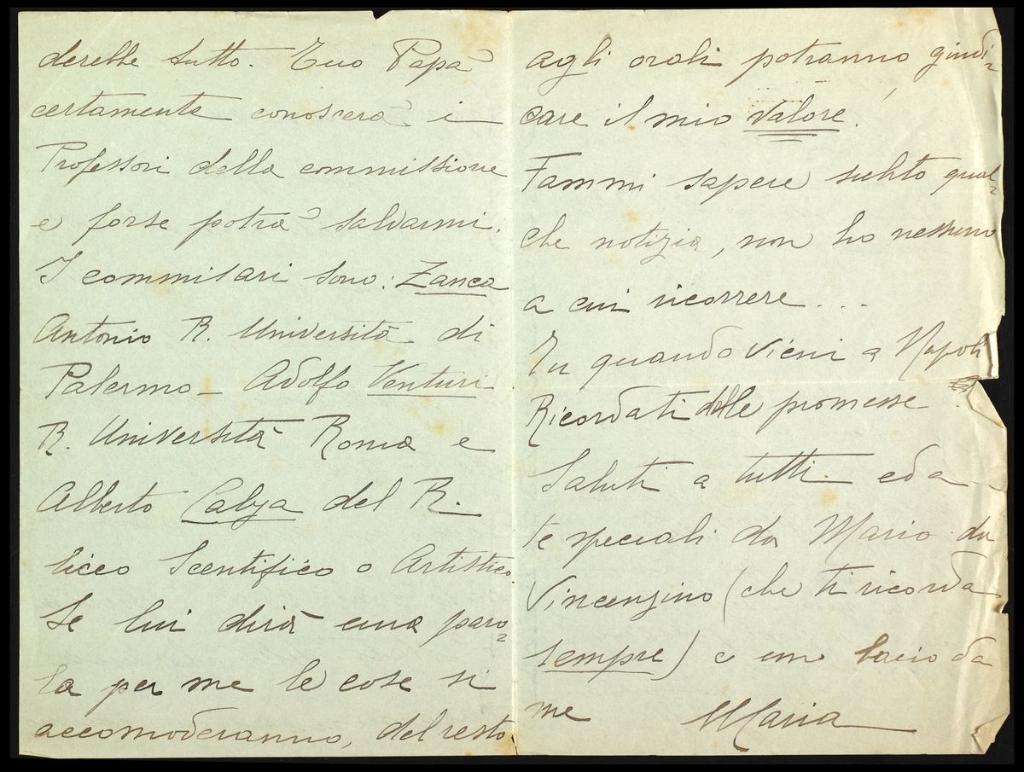 derebbe tutto. Tuo Papà
certamente conoscerà i
Professori della commissione
e forse potrà salvarmi.
I commissari sono: Zanca
Antonio R. Università di
Palermo - Adolfo Venturi
R. Università Roma e
Alberto Calza del R.
liceo Scentifico o Artistico.
Se lui dirà una paro=
la per me le cose si
accomoderanno, del resto
agli orali potranno giudi=
care il mio valore!
Fammi sapere subito qual=
che notizia, non ho nessuno
a cui ricorrere...
Tu quando vieni a Napoli
Ricordati delle promesse
Saluti a tutti ed a
te speciali da Mario da
Vincenzino (che ti ricorda
sempre) e un bacio da
me Maria